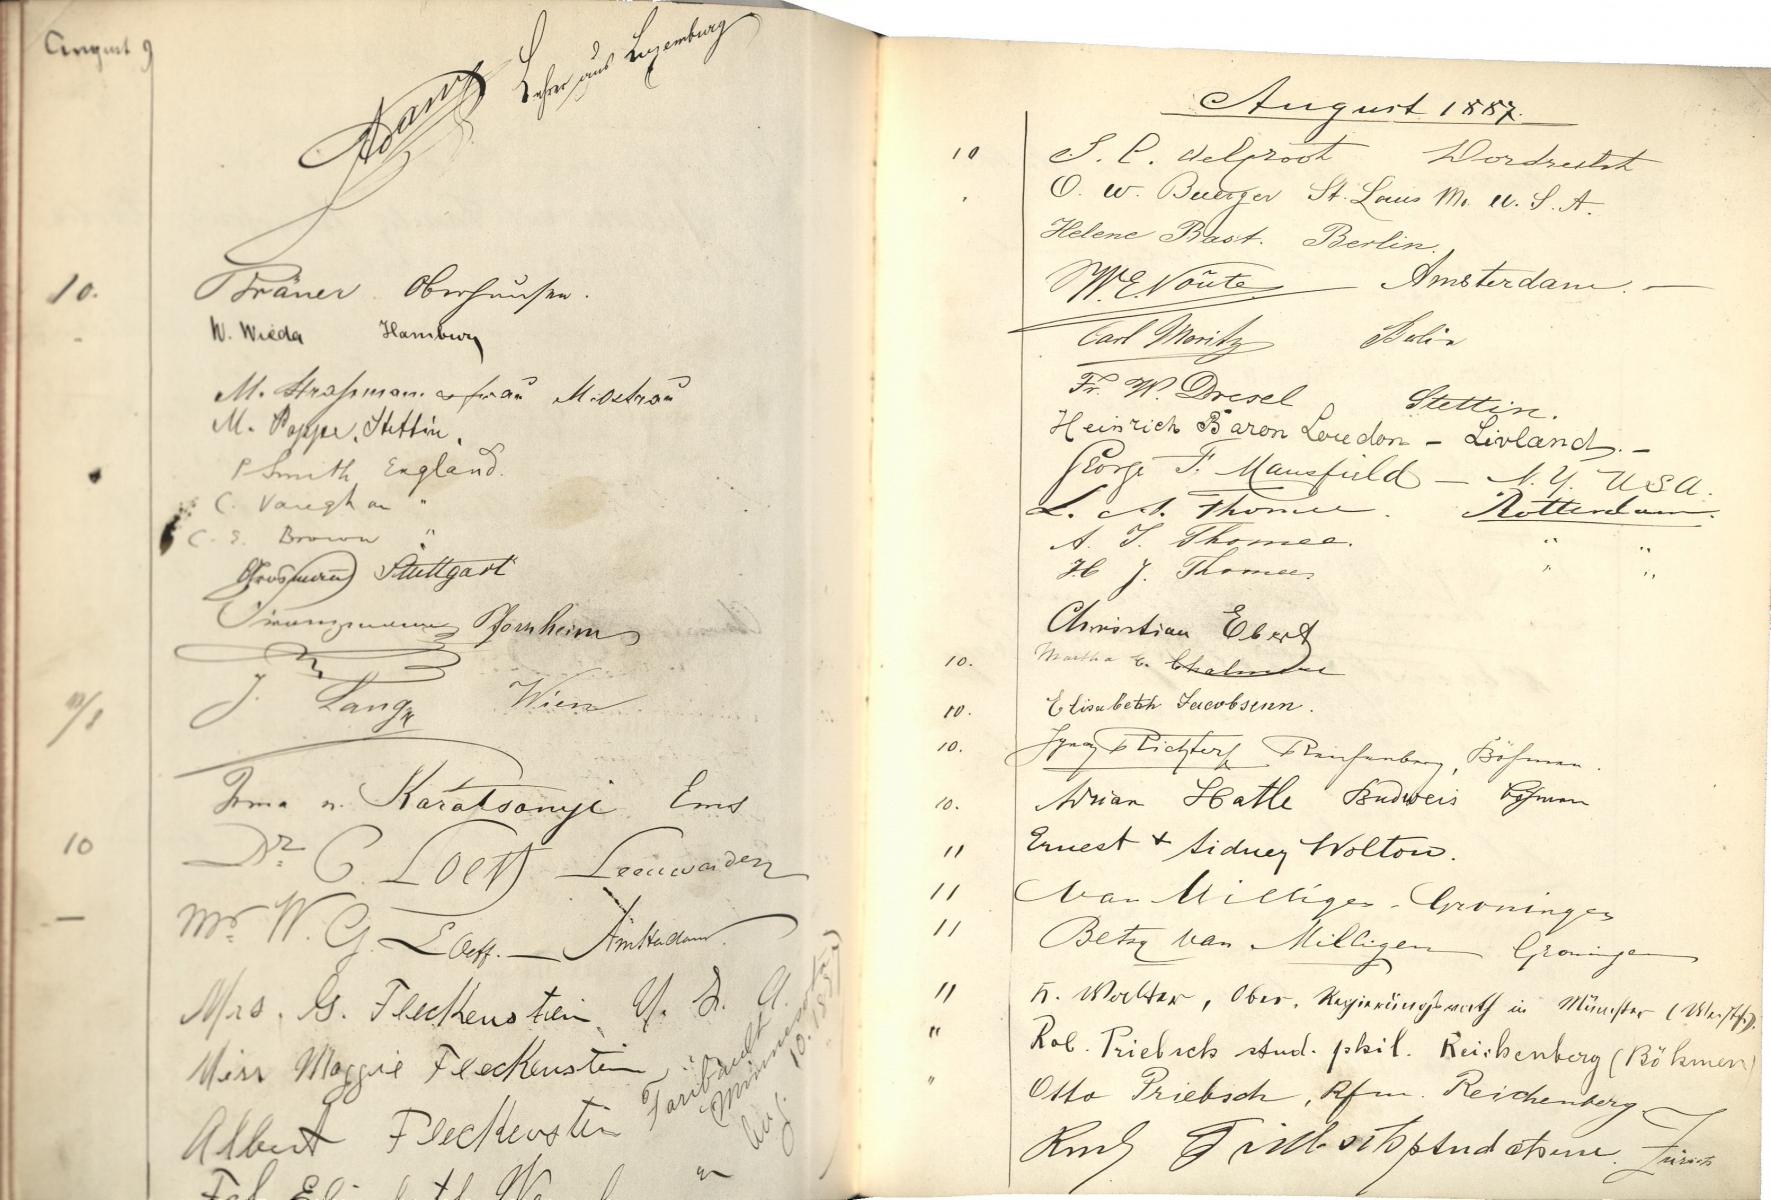 August 9
Adams Lehrer aus Luxemburg
10. Kräner Oberhausen.
W. Wieda Hamburg
M. Straßmann u. frau M. Ostrau
M. Poppe, Stettin.
P Smith England.
C. Vaughan "
C. E. Brown "
Grosmann Stuttgart
Pforzheim
J. Lang Wien
Irma v. Karátsonyi Ems
10 Dr. C. Loeff Leeuwarden
— Mr. W. G. Loeff. — Amsterdam.
Mrs. G. Fleckenstein U. S. A.
Miss Maggie Fleckenstein
Albert Fleckenstein
Faribault
Minnesota
Aug. 10. 1887
August 1887.
10 S. C. delgroot Dordrecht
O. W. Buerger St. Louis Mo. U. S. A.
Helene Bast. Berlin.
W. E. Noüte Amsterdam. —
Carl Moritz Berlin
Fr. W. Dresel Stettin.
Heinrich Baron Loudon — Livland. —
George F. Mansfield — N. Y. U S A.
L. A. Thomee. Rotterdam.
A. J. Thomee. " "
H J. Thomee. " "
Christian Ebert
10. Martha E. Chalmers
10. Elisabeth Jacobsenn.
10. Ignaz Richter Reichenberg, Böhmen.
10. Adrian Hatle Budweis Böhmen
11 Ernest + Sidney Wolton.
11 Van Milligen - Groningen
11 Betsy van Milligen Groningen
11 H. Walter, Ober. Regierungsrath in Münster (Westf).
" Rob. Priebsch stud. phil. Reichenberg (Böhmen)
" Otto Priebsch, Kfm. Reichenberg
Zürich